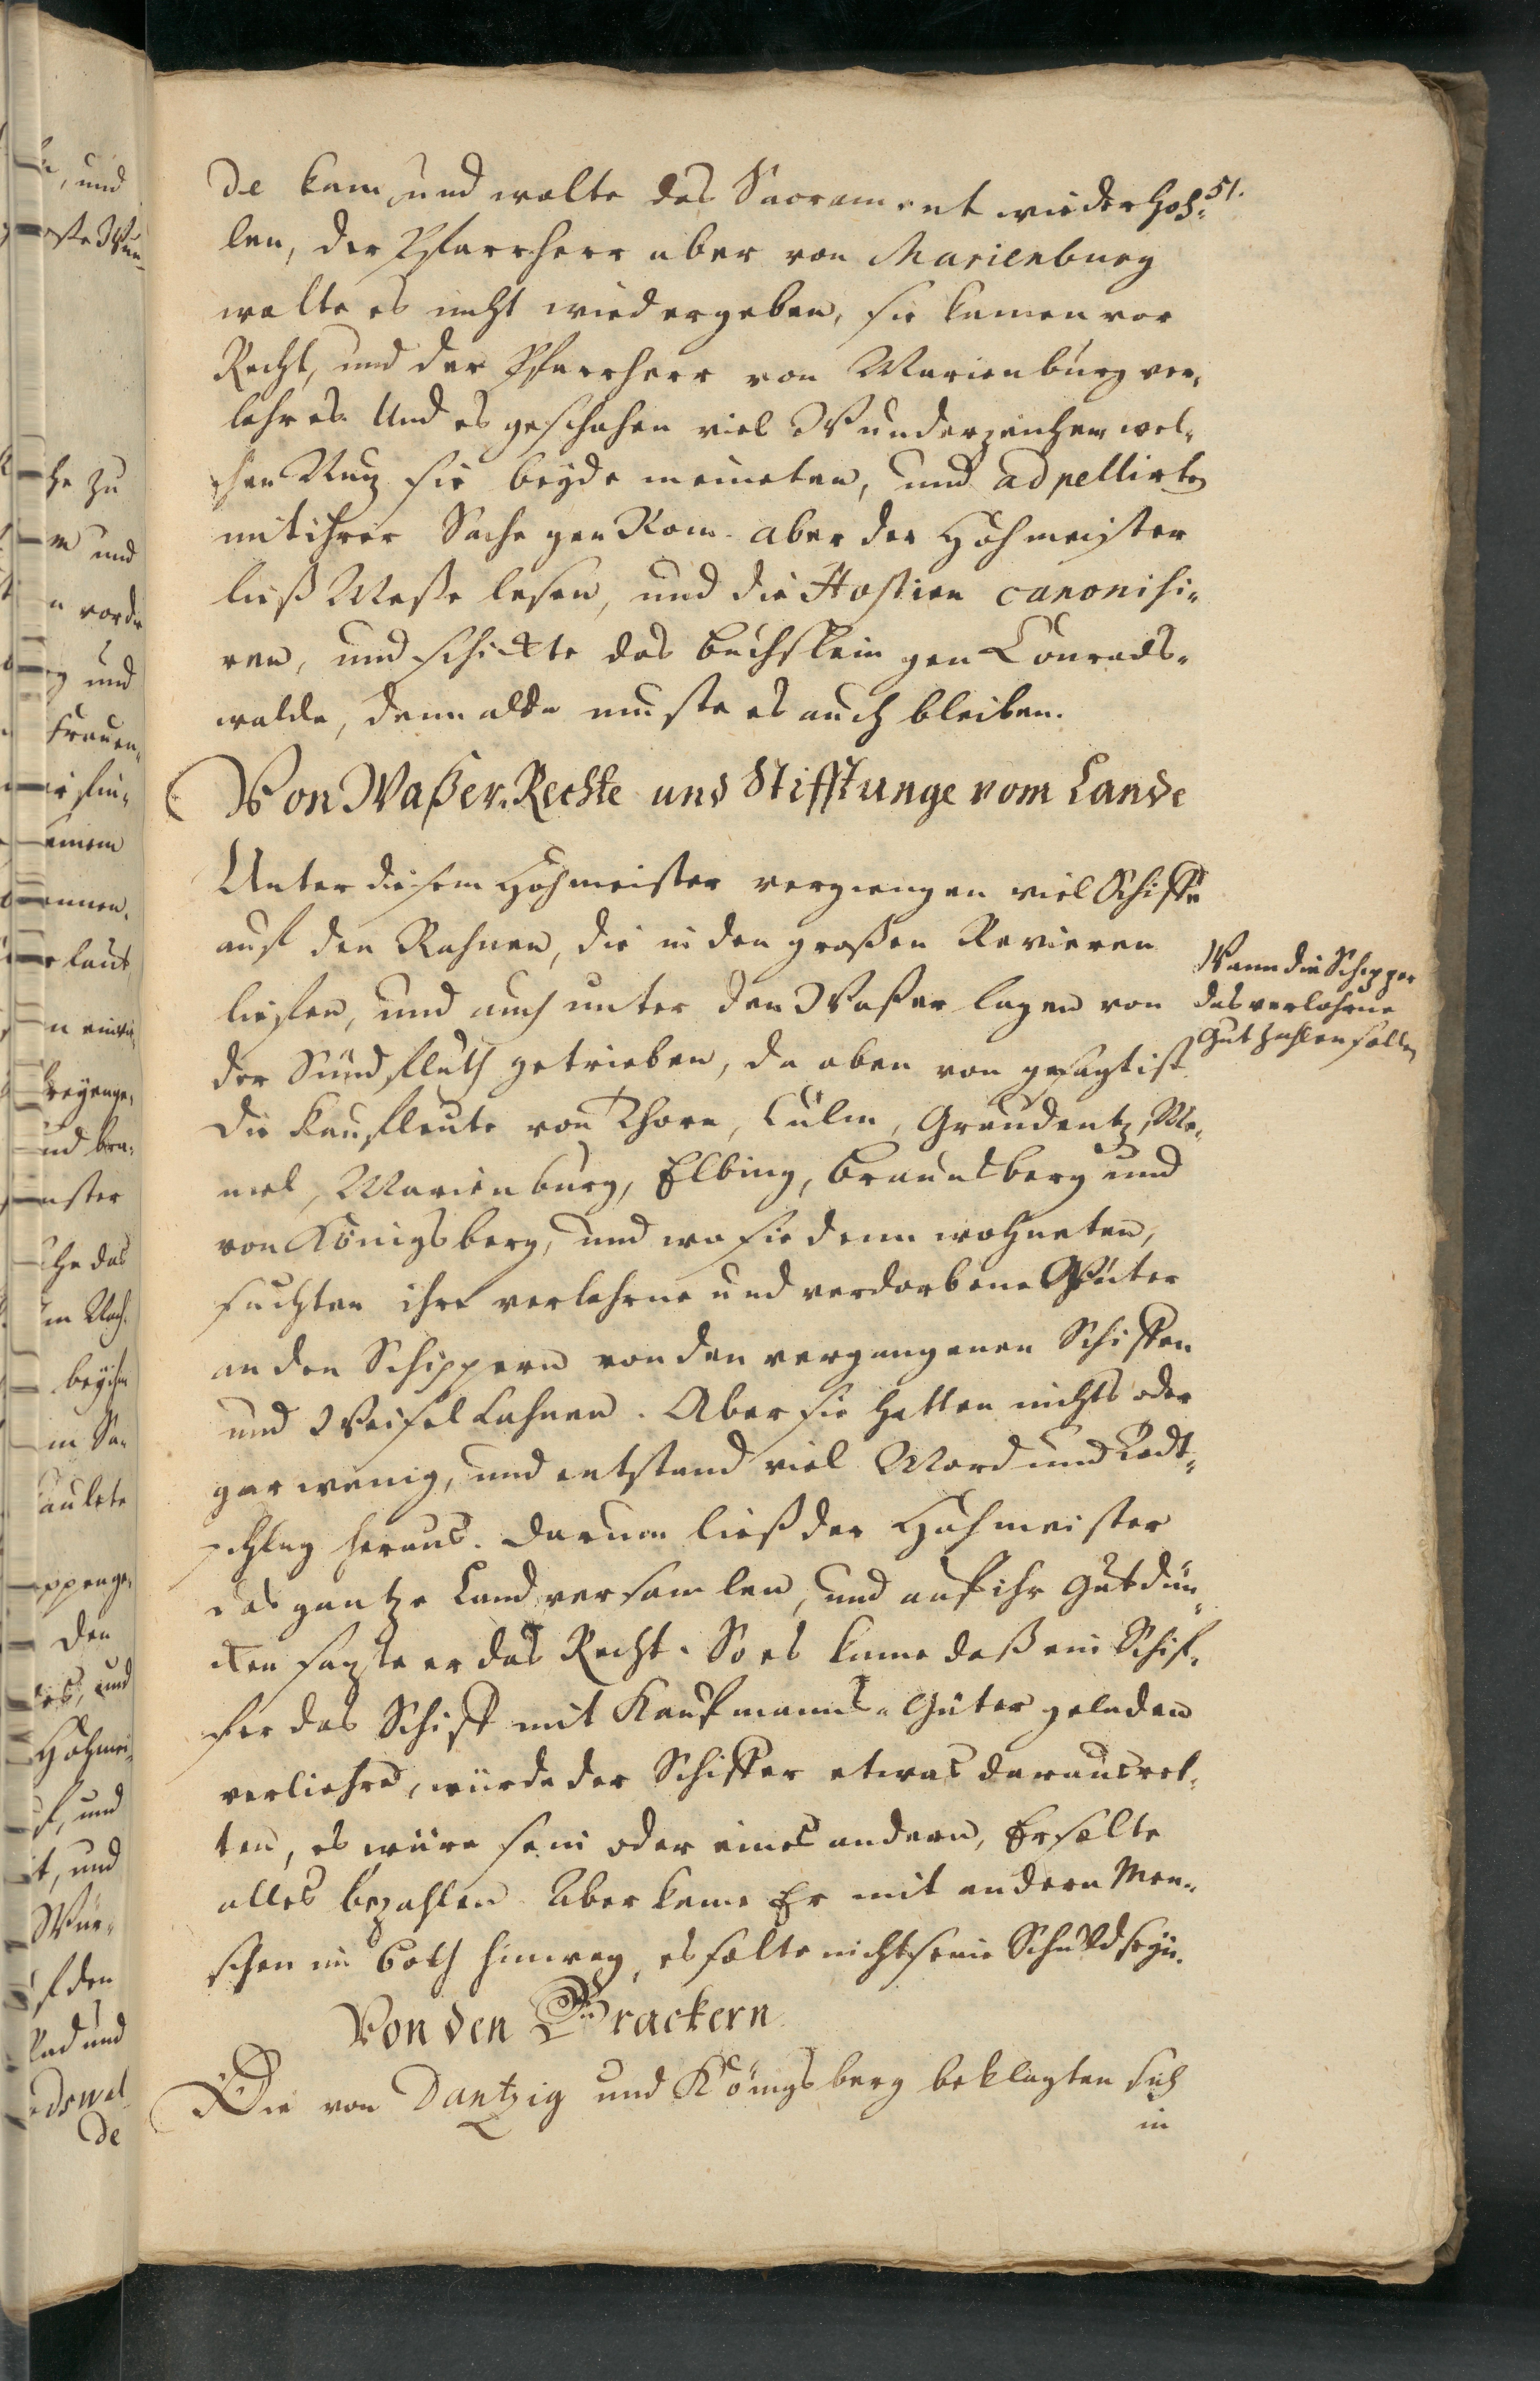 51.
de kam und wolte das Sacrament wieder hoh-
len, der Pfarrherr aber von Marienburg
wolte es nicht wiedergeben, sie kamen vor
Recht, und der Pfarrherr von Marienburg ver-
lohr es. Und es geschahen viel Wunderzeichen, wel-
chen Nutz sie beyde meineten, und adpellirten
mit ihrer Sache gen Rom. aber der Hohmeister
ließ Meße lesen, und die Hostien canonisi-
ren, und schickte das büchslein gen Conrads-
walde, denn alda muste es auch bleiben.
Von Waßer-Rechte und Stifftunge vom Lande
Unter diesem Hohmeister vergiengen viel Schiffe
auf den Kahnen, die in den großen Revieren
lieffen, und auch unter den Waßer lagen von
der Sündfluth getrieben, da oben von gesagt ist.
Die Kaufleute von Thorn, Culm, Graudentz, Me-
mel, Marienburg, Elbing, Braunsberg und
von Königsberg, und wo sie denn wohneten,
suchten ihre verlohrne und verdorbene Güter
an den Schippern von den vergangenen Schiffen
und Weisel Kahnen. Aber sie hatten nichts oder
gar wenig, und entstand viel Mord und Todt-
schlag heraus. Darum ließ der Hohmeister
das gantze Land versamlen, und auf ihr Gutdün-
cken satzte er das Recht. So es kame daß ein Schif-
fer das Schiff mit Kaufmanns-Güter geladen
verliehrd, würde der Schiffer etwas daraus ret-
ten, es wäre sein oder eines andern, Er solte
alles bezahlen. Aber kame Er mit andern Men-
schen im Both hinweg, es solte nicht seine Schuld seyn.
Wann die Schipper
das verlohrne
Gut zahlen sollen
Von den Brackern
Die von Dantzig und Königsberg beklagten sich
in